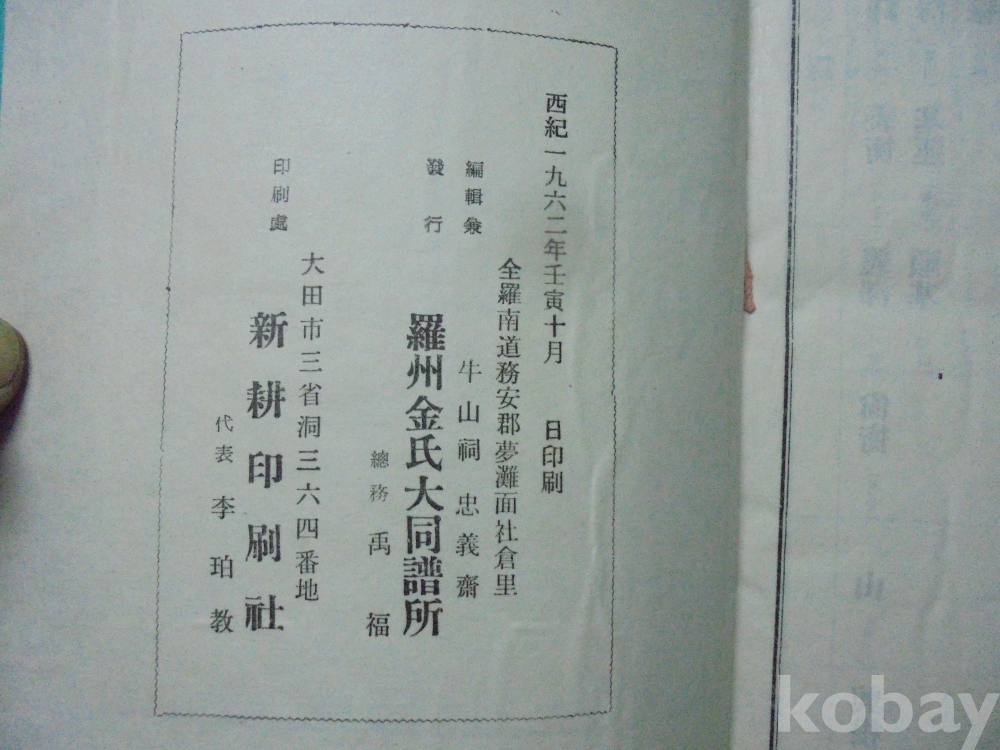 西紀一九六二年壬寅十月　日印刷
全羅南道務安郡夢灘面社倉里
編輯兼
牛山祠 忠義齋
發行
羅州金氏大同譜所
總務 禹福
大田市三省洞三六四番地
印刷處
新耕印刷社
代表 李珀教
kobay